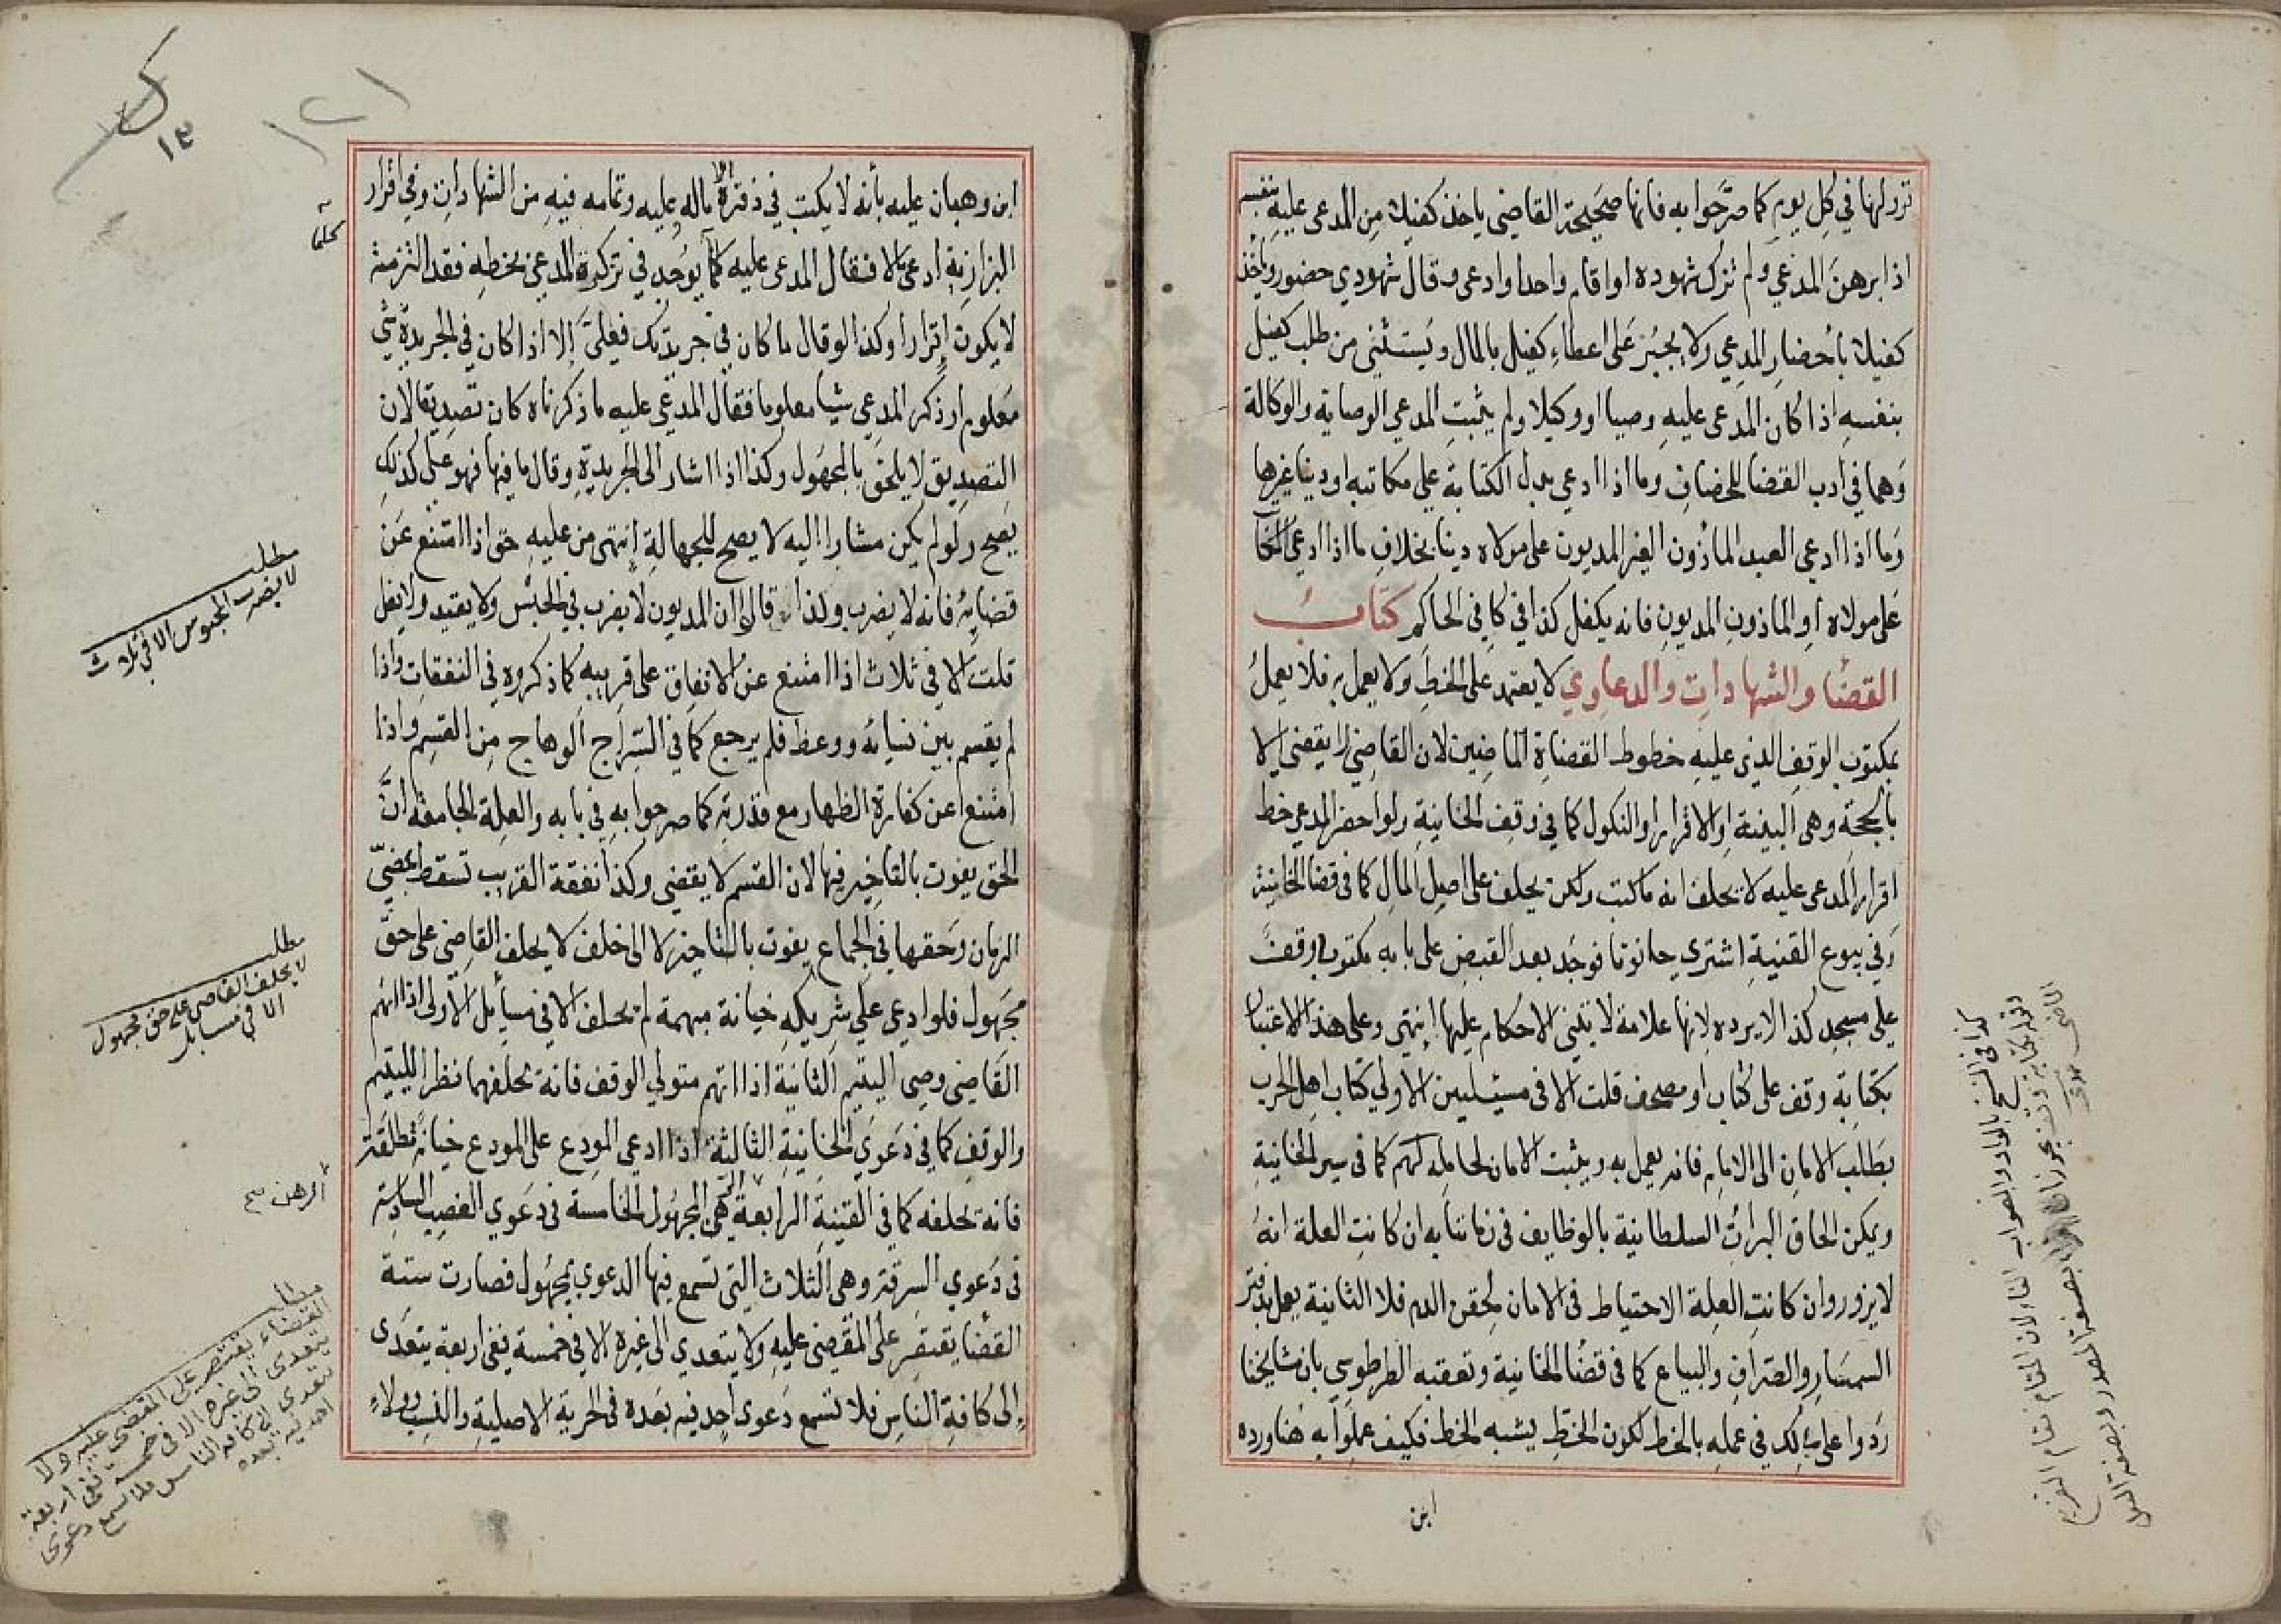 تزولها في كل يوم كما صرحوا به فانها صحيحة القاضي ياخذ كفيلا من المدعى عليه بنفسه
اذا برهن المدعي ولم تزك شهوده او اقام واحدا وادعى وقال شهودي حضور وياخذ
كفيلا باحضار المدعي ولا يجبر على اعطاء كفيل بالمال ويستثنى من طلب كفيل
بنفسه اذا كان المدعى عليه وصيا او وكيلا ولم يثبت المدعي الوصاية والوكالة
وهما في ادب القضا للخصاف وما اذا ادعى بدل الكتابة على مكاتبه او دينا غيرها
وما اذا ادعى العبد الماذون الغير المديون على مولاه دينا بخلاف ما اذا ادعى المكاتب
على مولاه او الماذون المديون فانه يكفل كذا في كافي الحاكم كتاب
القضا والشهادات والدعاوي لا يعتمد على الخط ولا يعمل به فلا يعمل
بمكتوب الوقف الذي عليه خطوط القضاة الماضين لان القاضي لا يقضي الا
بالحجة وهى البينة او الاقرار او النكول كما في وقف الخانية ولو احضر المدعي خط
اقرار المدعى عليه لا يحلف انه ما كتب ولكن يحلف على اصل المال كما في قضا الخانية
وفي بيوع القنية اشترى حانوتا فوجد بعد القبض على بابه مكتوب وقف
على مسجد كذا لا يرده لانها علامة لا تبتني الاحكام عليها انتهى وعلى هذا لا اعتبار
بكتابة وقف على كتاب او مصحف قلت الا في مسئلتين الاولى كتاب اهل الحرب
بطلب الامان الى الامام فانه يعمل به ويثبت الامان لحامله كهم كما في سير الخانية
ويمكن الحاق البرات السلطانية بالوظايف في زماننا به ان كانت العلة انه
لا يزور وان كانت العلة الاحتياط في الامان لحقن الدم فلا الثانية يعمل بدفتر
السمسار والصراف والبياع كما في قضا الخانية وتعقبه الطرطوسي بان مشايخنا
ردوا على مالك في عمله بالخط لكون الخط يشبه الخط فكيف عملوا به هنا ورده
ابن
ابن وهبان عليه بأنه لا يكتب في دفتره الا ماله وعليه وتمامه فيه من الشهادات وفي اقرار
البزازية ادعى مالا فقال المدعى عليه كلما يوجد في تزكرة المدعي بخطه فقد التزمته
كلما
لا يكون اقرارا وكذا لو قال ما كان في جريدتك فعلي الا اذا كان في الجريدة شي
معلوم او ذكر المدعي شيا معلوما فقال المدعى عليه ما ذكرناه كان تصديقا لان
التصديق لا يلحق بالمجهول وكذا اذا اشار الى الجريدة وقال ما فيها فهو على كذلك
يصح ولو لم يكن مشارا اليه لا يصح للجهالة انتهى من عليه حق اذا امتنع عن
قضائه فانه لا يضرب ولذا قالوا ان المديون لا يضرب في الحبس ولا يقيد ولا يغل
مطلب
لا يضرب المحبوس الا في ثلاث
قلت الا في ثلاث اذا امتنع عن الانفاق على قريبه كما ذكروه في النفقات واذا
لم يقسم بين نسائه ووعظ فلم يرجع كما في السراج الوهاج من القسم واذا
امتنع عن كفارة الظهار مع قدرته كما صرحوا به في بابه والعلة الجامعة ان
الحق يفوت بالتاخير فيها لان القسم لا يقضى وكذا نفقة القريب تسقط بمضي
الزمان وحقها في الجماع يفوت بالتاخير لا الى خلف لا يحلف القاضي على حق
مطلب
لا يحلف القاضي على حق مجهول
الا في مسايل
مجهول فلو ادعى على شريكه خيانة مبهمة لم يحلف الا في مسايل الاولى اذا اتهم
القاضي وصي اليتيم الثانية اذا اتهم متولي الوقف فانه يحلفهما نظرا لليتيم
والوقف كما في دعوى الخانية الثالثة اذا ادعى المودع على المودع خيانة مطلقة
فانه يحلفه كما في القنية الرابعة المجهول الخامسة في دعوى الغصب السادسة
الرهن صح
في دعوى السرقة وهى الثلاث التي تسمع فيها الدعوى بمجهول فصارت ستة
القضا يقتصر على المقضى عليه ولا يتعدى الى غيره الا في خمسة ففي اربعة يتعدى
الى كافة الناس فلا تسمع دعوى احد فيه بعده في الحرية الاصلية والنسب وولاء
القضاء يقتصر على المقضى عليه ولا
يتعدى الى غيره الا في خمسة ففى اربعة
يتعدى الى كافة الناس فلا تسمع دعوى
احد فيه بعده
١٢١
١٣